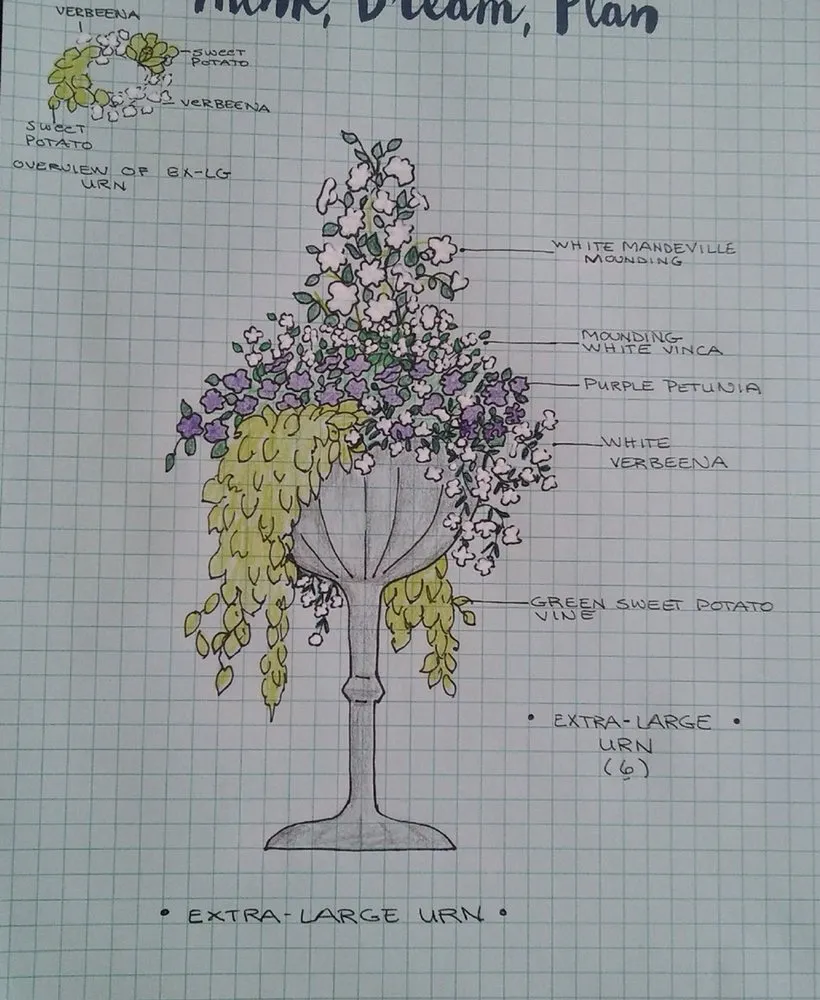 Think, Dream, Plan
VERBEENA
SWEET
POTATO
VERBEENA
SWEET
POTATO
OVERVIEW OF EX-LG
URN
WHITE MANDEVILLE
MOUNDING
MOUNDING
WHITE VINCA
PURPLE PETUNIA
WHITE
VERBEENA
GREEN SWEET POTATO
VINE
• EXTRA-LARGE •
URN
(6)
• EXTRA-LARGE URN •